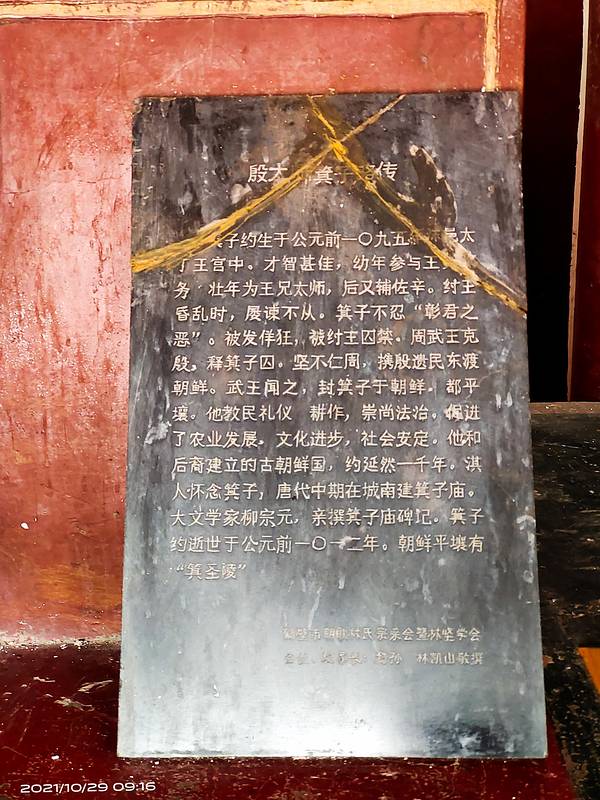 殷太 箕子 传
箕子约生于公元前一〇九五 太
丁王宫中。才智甚佳，幼年参与王
务 壮年为王兄太师，后又辅佐辛。纣王
昏乱时，屡谏不从。箕子不忍“彰君之
恶”。被发佯狂，被纣王囚禁。周武王克
殷，释箕子囚。坚不仁周，携殷遗民东渡
朝鲜。武王闻之，封箕子于朝鲜。都平
壤。他教民礼仪 耕作，崇尚法治。促进
了农业发展。文化进步，社会安定。他和
后裔建立的古朝鲜国，约延然一千年。淇
人怀念箕子，唐代中期在城南建箕子庙。
大文学家柳宗元，亲撰箕子庙碑记。箕子
约逝世于公元前一〇一二年。朝鲜平壤有
“箕圣陵”
鹤壁市朝歌林氏宗亲会暨林坚学会
会长、 林凯山敬撰
2021/10/29 09:16